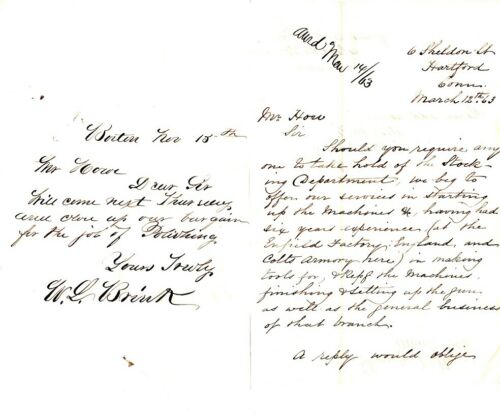 Boston Nov 18th
Mr Howe
Dear Sir
Will come next Thursday
and close up our bargain
for the job of Polishing
Yours Truly
W. L. Brink
Ansd Mar 14/63
6 Sheldon St
Hartford
Conn.
March 12th 63
Mr How
Sir
Should you require any
one to take hold of the Stock-
ing Department, we beg to
offer our services in Starting
up the Machines &, having had
six years experience (at the
Enfield Factory, England, and
Colts Armory here) in making
tools for, & Keepg the Machines,
finishing & setting up the gun
as well as the general business
of that branch.
A reply would oblige